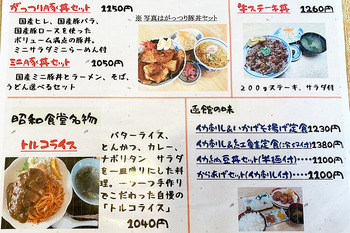 がっつり豚丼セット 1250円
国産ヒレ、国産豚バラ、
国産豚ロースを使った
ボリューム満点の豚丼。
ミニサラダミニらーめん付
ミニ豚丼セット 1050円
国産ミニ豚丼とラーメン、そば、
うどん選べるセット
※写真はがっつり豚丼セット
牛ステーキ丼 1260円
200gステーキ、サラダ付
昭和食堂名物
トルコライス
バターライス、
とんかつ、カレー、
ナポリタン サラダ
を一皿盛りにした料
理。一つ一つ手作り
でこだわった自慢の
「トルコライス」
1040円
函館の味
イカ刺し&いかげそ揚げ定食 1230円
イカ刺し&紅鮭定食 1380円
イカ納豆丼セット(半麺付) 1100円
からあげセット(イカ刺し付) 1100円